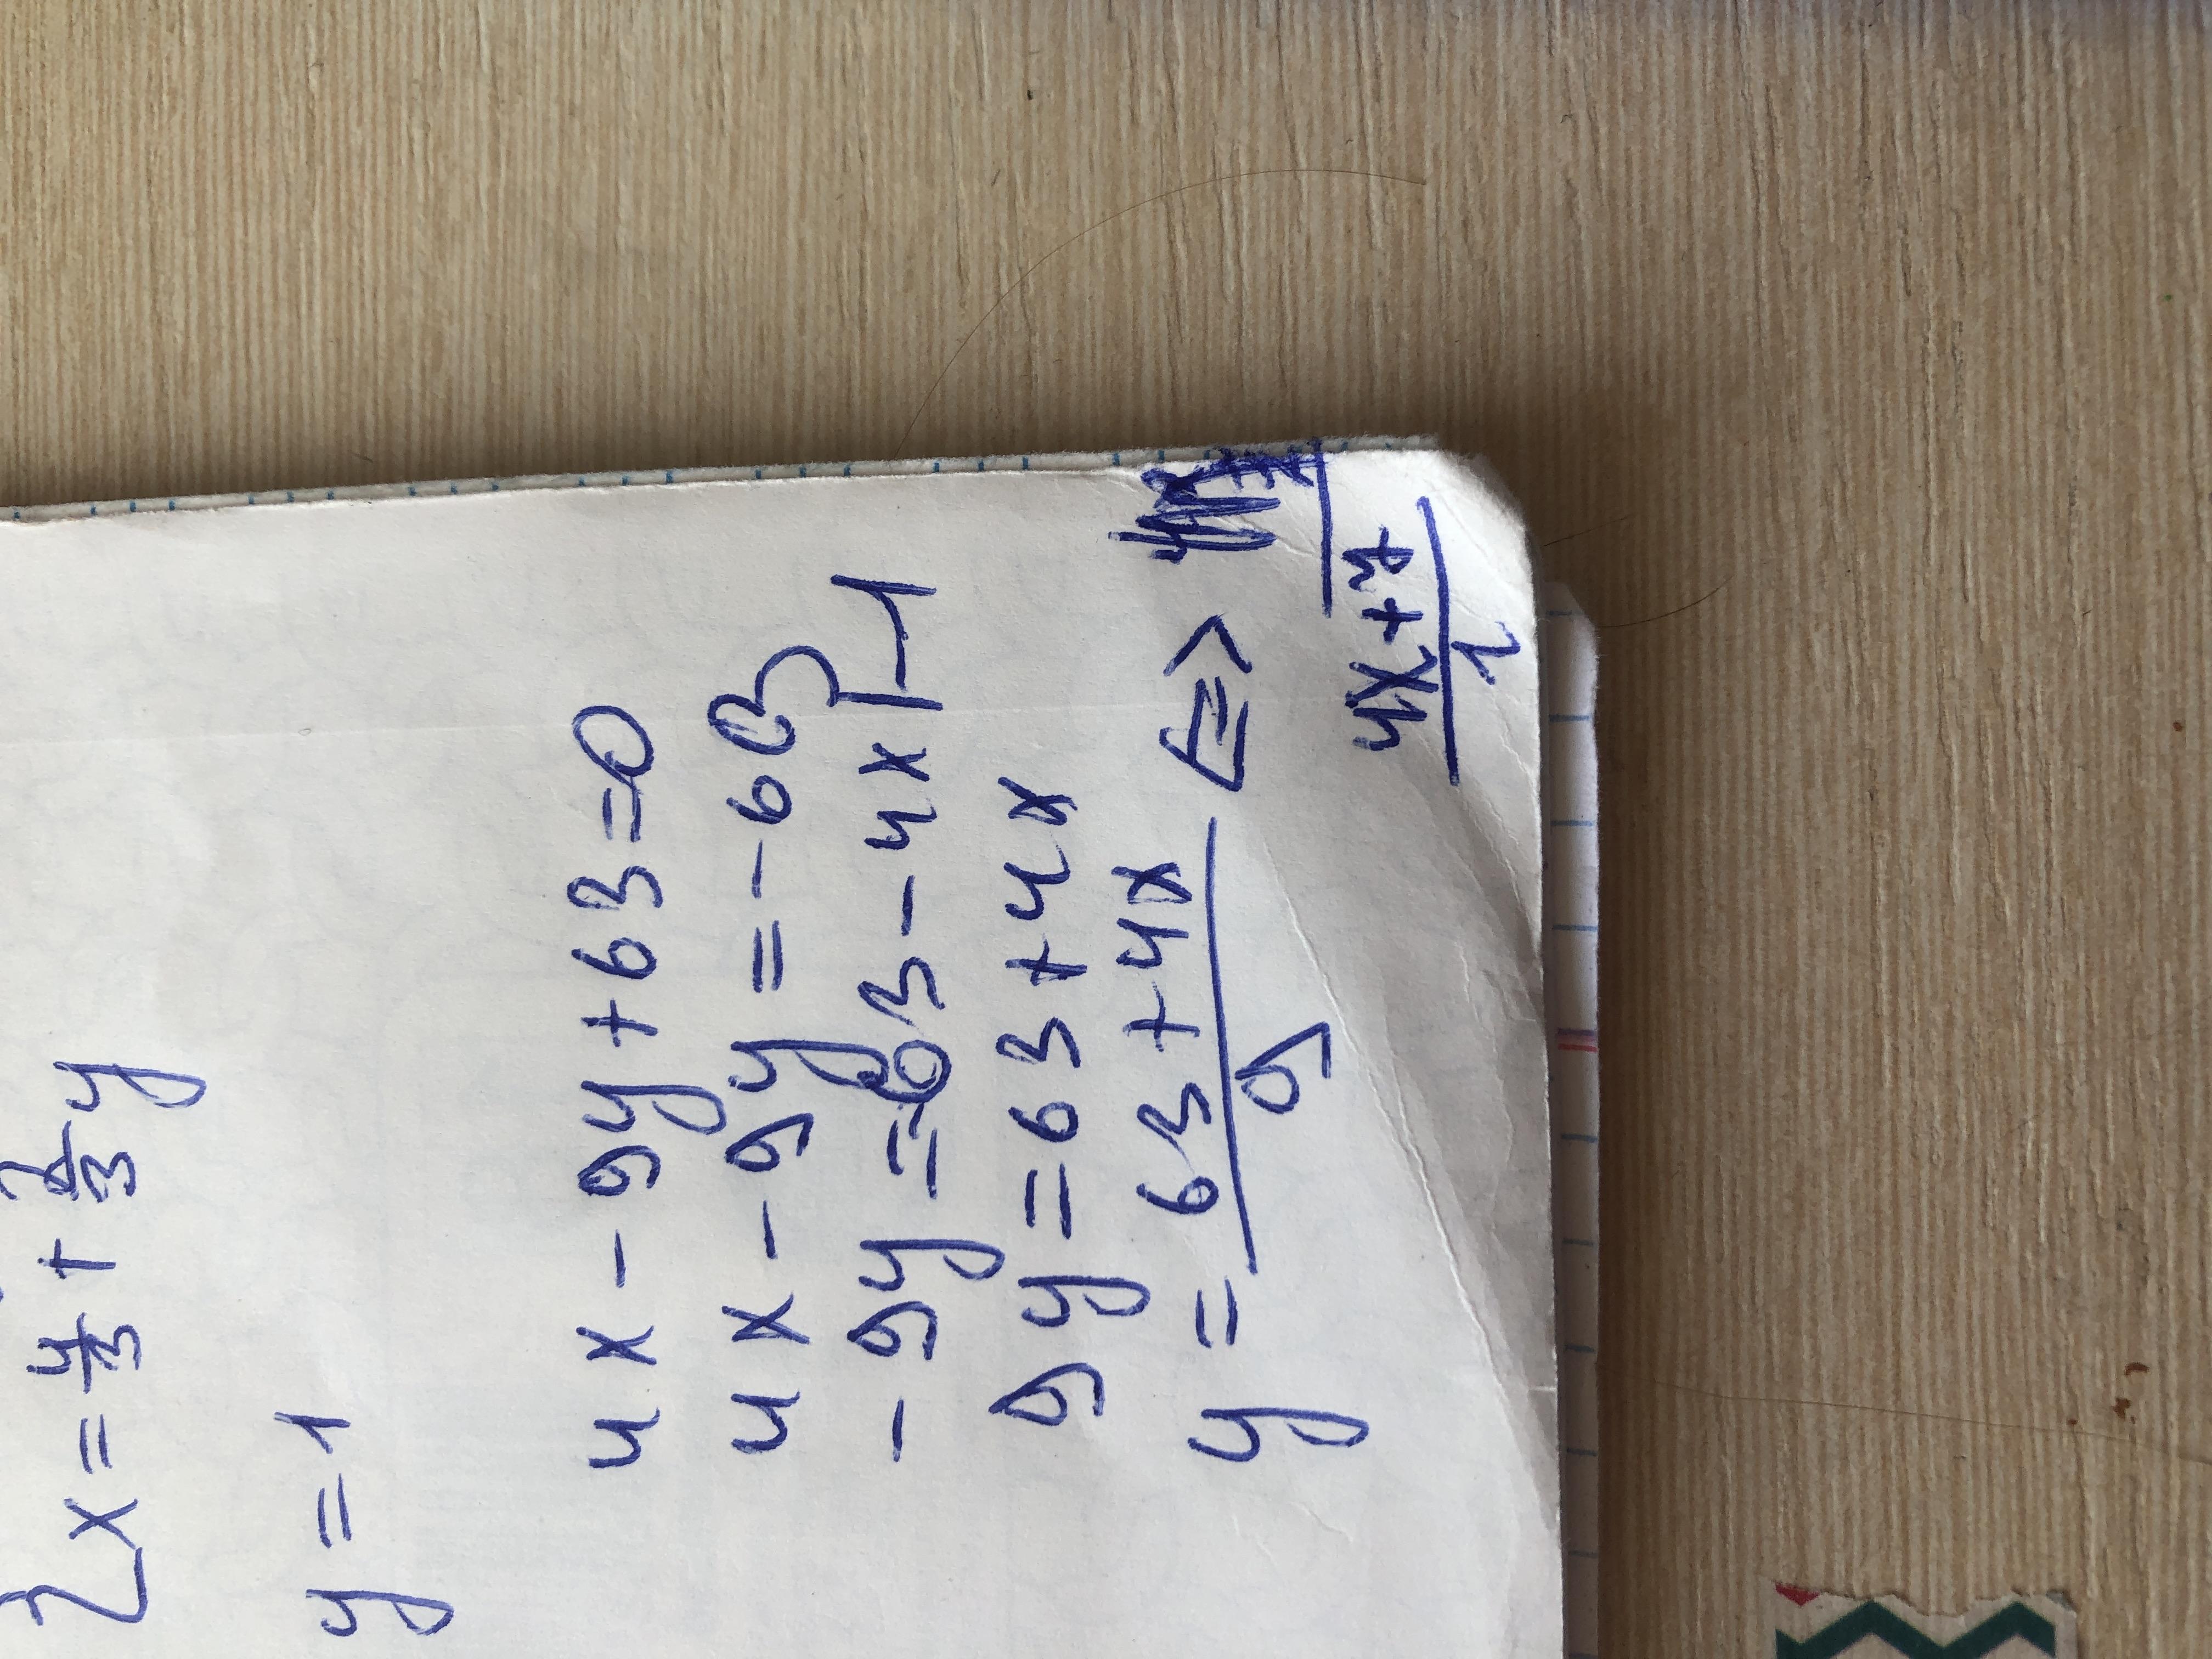 {x = 4/3 + 2/3 y
y = 1
4x - 9y + 63 = 0
4x - 9y = -63
-9y = -63 - 4x | -1
9y = 63 + 4x
y = (63 + 4x)/9 <=>
(4x + 7)/1